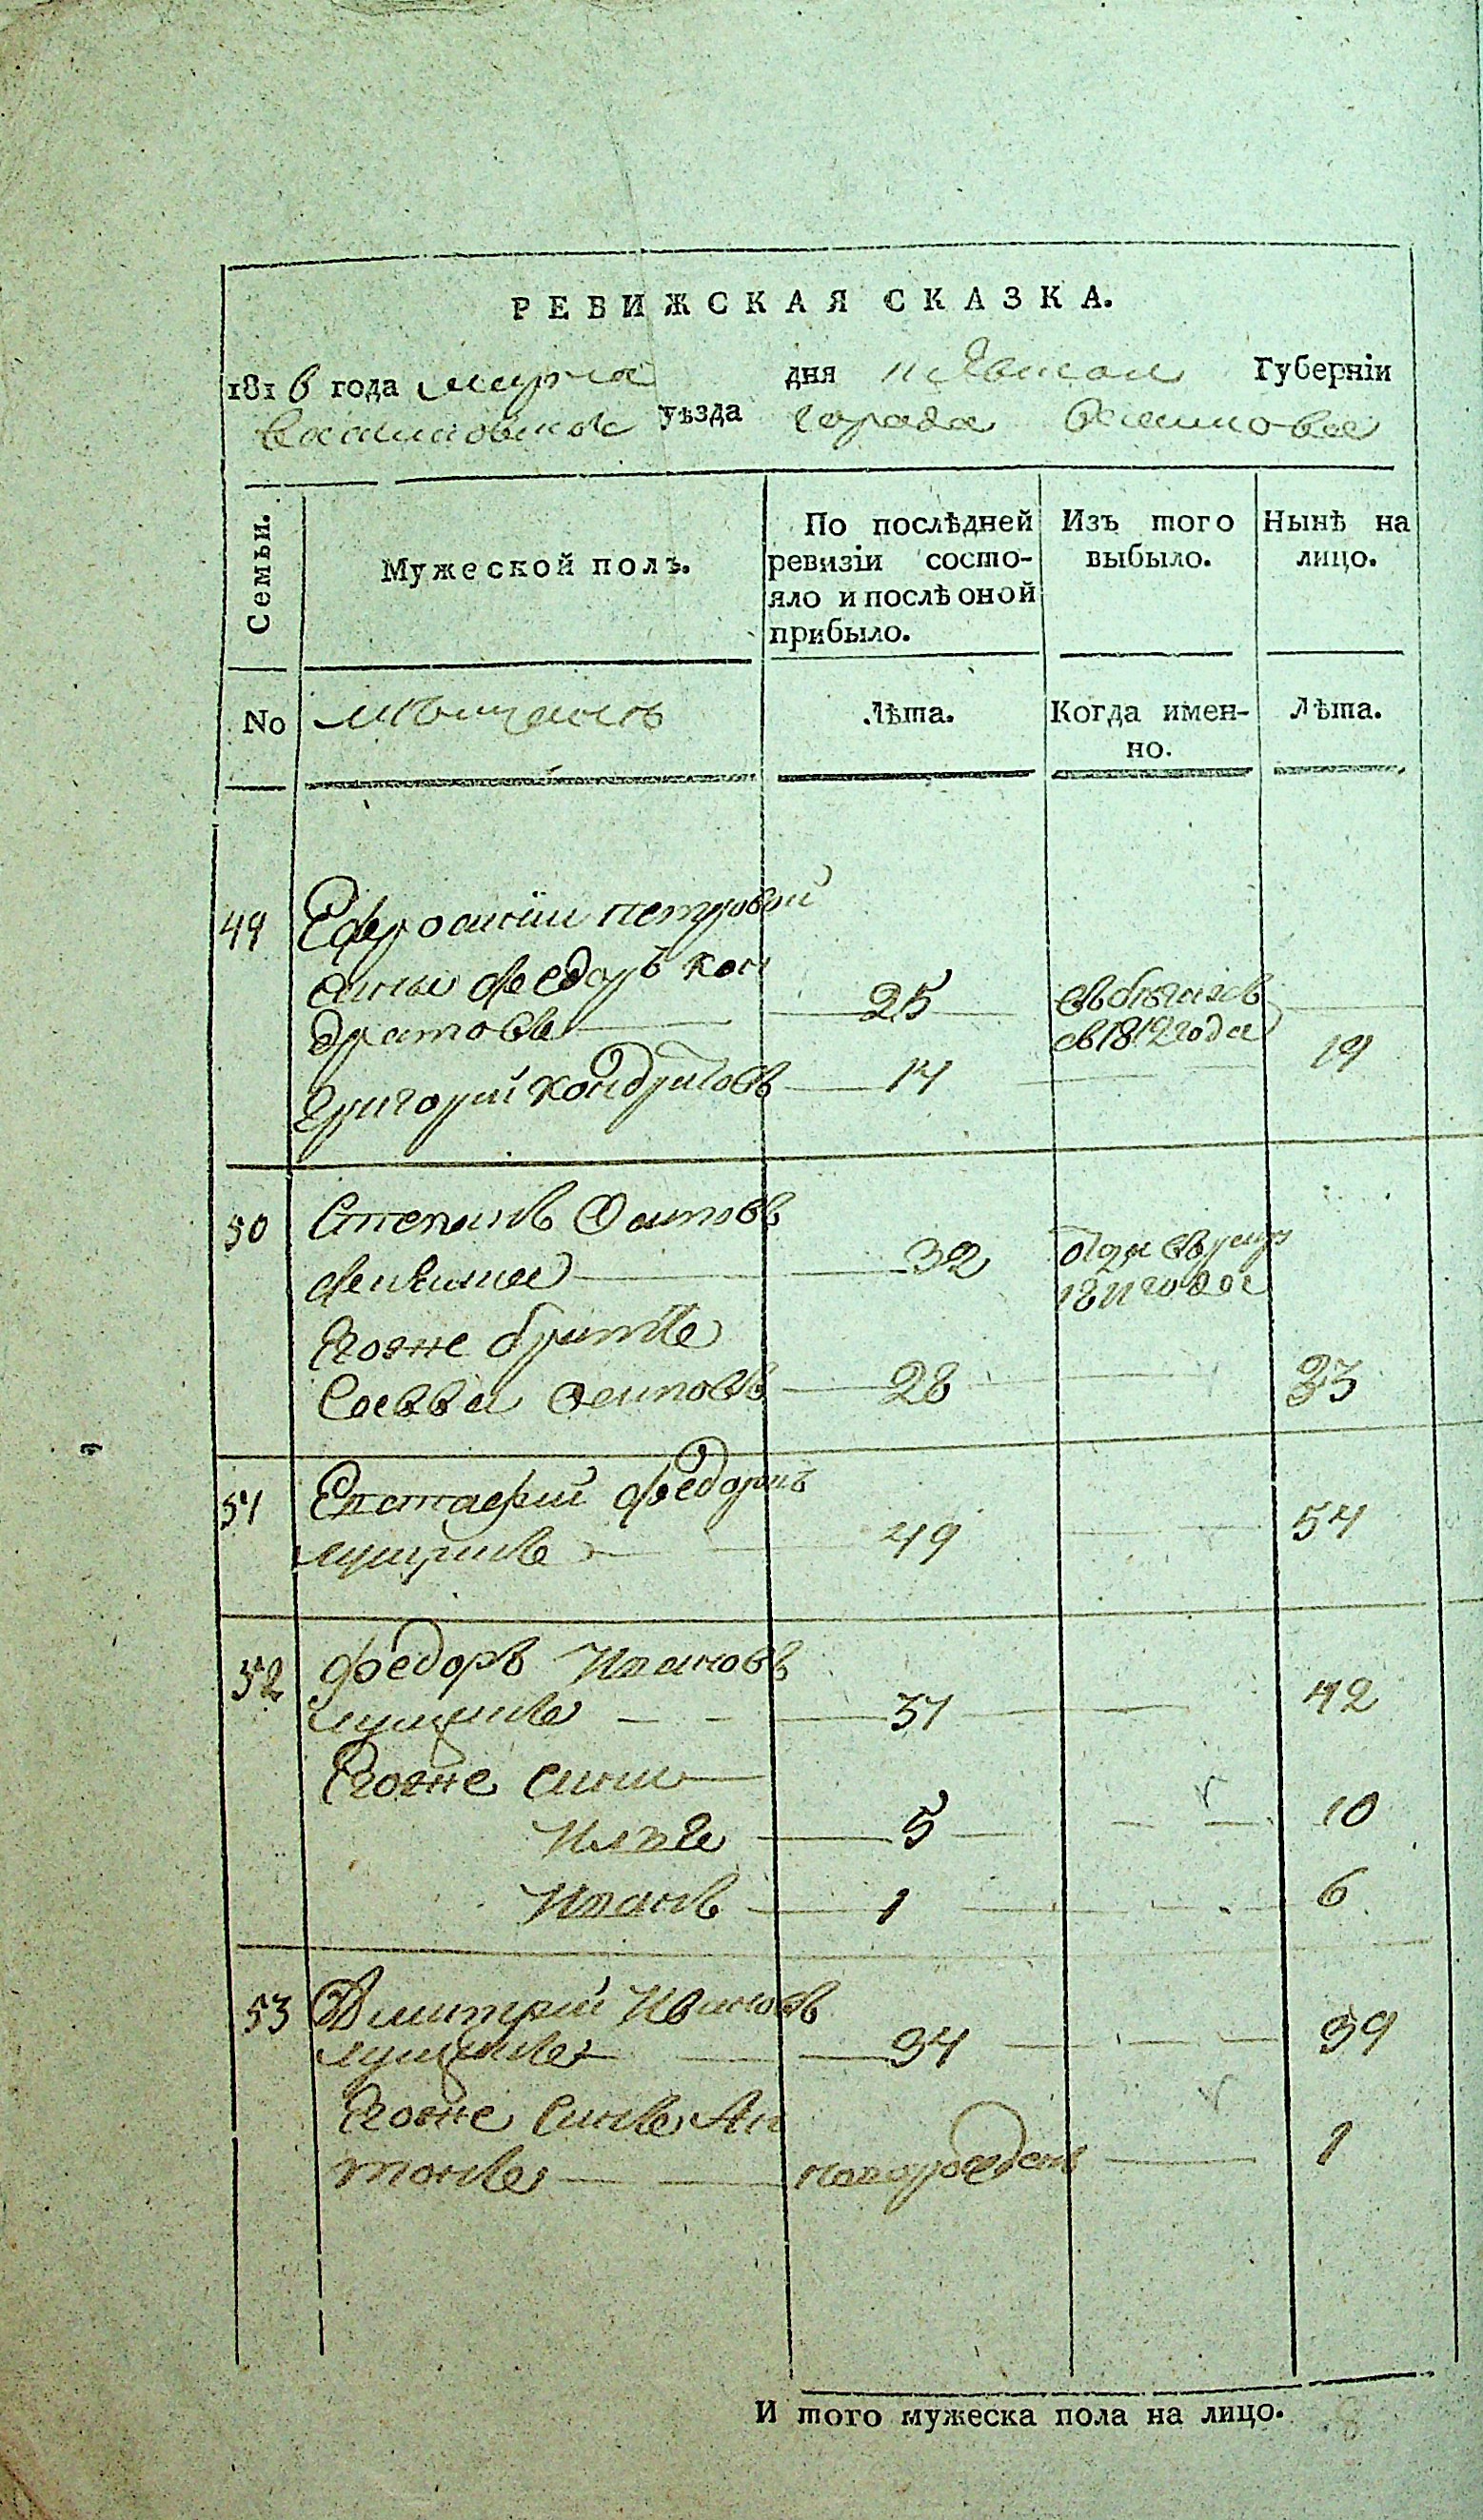 РЕВИЖСКАЯ СКАЗКА.
1816 года марта дня Губерніи
уѣзда города
Семьи.
Мужеской полъ.
По послѣдней ревизіи состо-
яло и послѣ оной
прибыло.
Изъ того
выбыло.
Нынѣ на
лицо.
No мѣщанъ Лѣта. Когда имен-
но. Лѣта.
49 Ефросиніи петровой
сыны федоръ кон
дратовъ 25 въ бѣгахъ
въ 1812 года
Григорій кондратовъ 14 19
50 Степанъ Осиповъ
32
1811 года
Егоже братъ
Савва осиповъ 28 33
51 Евстафий федоринъ
49 54
52 федоръ Ивановъ
37 42
Егоже сыны
Илья 5 10
Иванъ 1 6
53 Дмитрий Ивановъ
34 39
Егоже сынъ Ан
тонъ новорожденъ 1
И того мужеска пола на лицо. 8